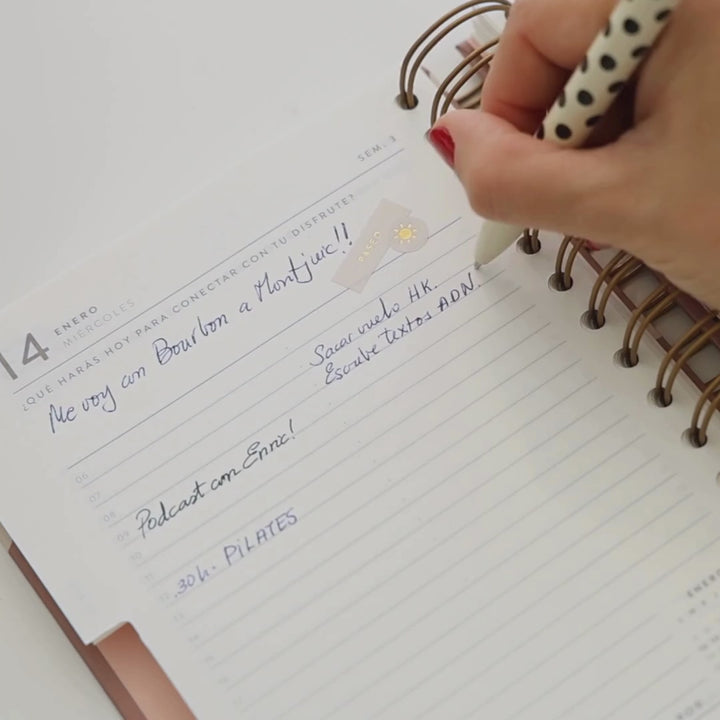 SEM. 3
14 ENERO
MIÉRCOLES
¿QUÉ HARÁS HOY PARA CONECTAR CON TU DISFRUTE?
Me voy con Bourbon a Montjuic!!
PASEO
Sacar vuelo HK.
Escribe textos ADN.
06
07
08
09
Podcast con Enric!
10
11
12
.30h. PILATES
ENERO